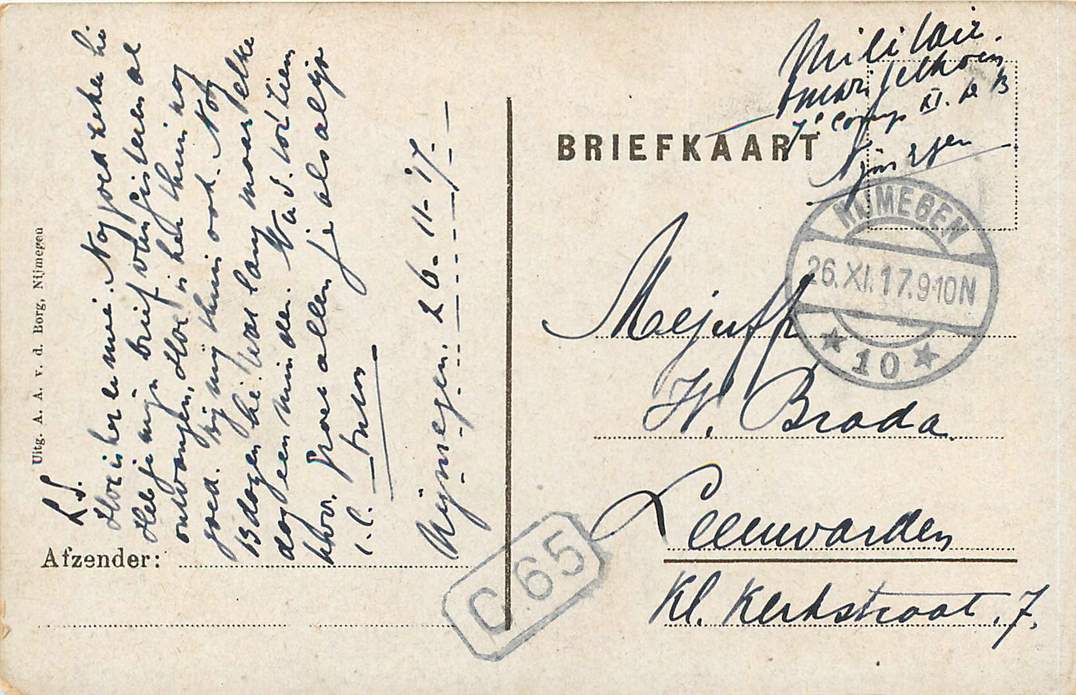 L.S.
Hoe is het er mee. Nog goed zeker hé
Heb je mijn brief van gisteren al
ontvangen. Hoe is het thuis nog
goed. bij mij thuis ook. Nog
13 dagen hé. Was lang maar elke
dag een minder. Nu d. tot ziens
hoor. Groet allen je als altijd
t. t.
Nijmegen. 26-11-17.
Afzender:
Uitg. A. A. v. d. Borg, Nijmegen
Militair.
7e Comp XI. D B
Nijmegen
BRIEFKAART
NIJMEGEN
26.XI.17.9-10N
★ 10 ★
Mejuffr
W. Brada.
Leeuwarden
Kl. Kerkstraat. 7.
C 65